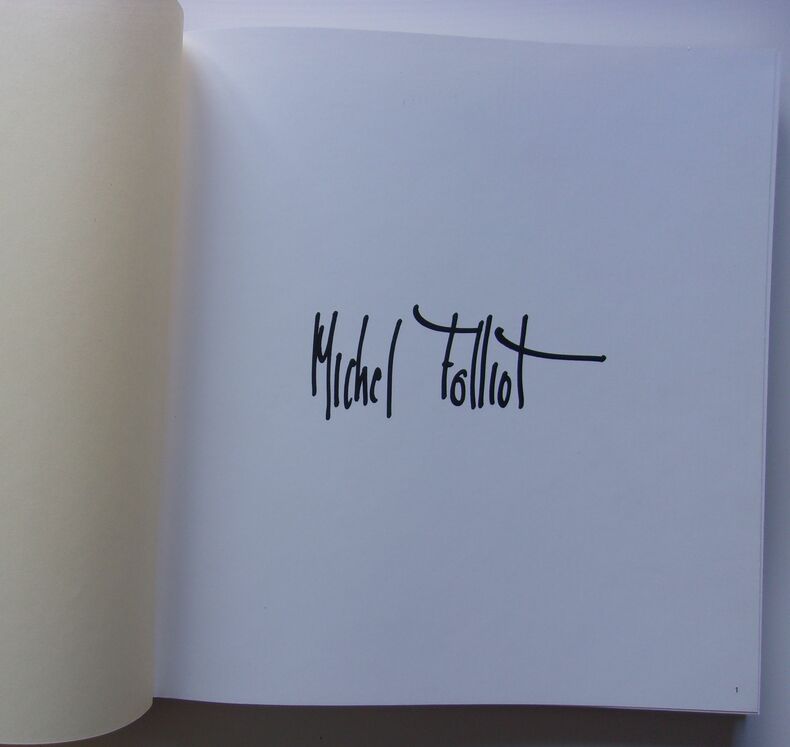 Michel Folliot
1